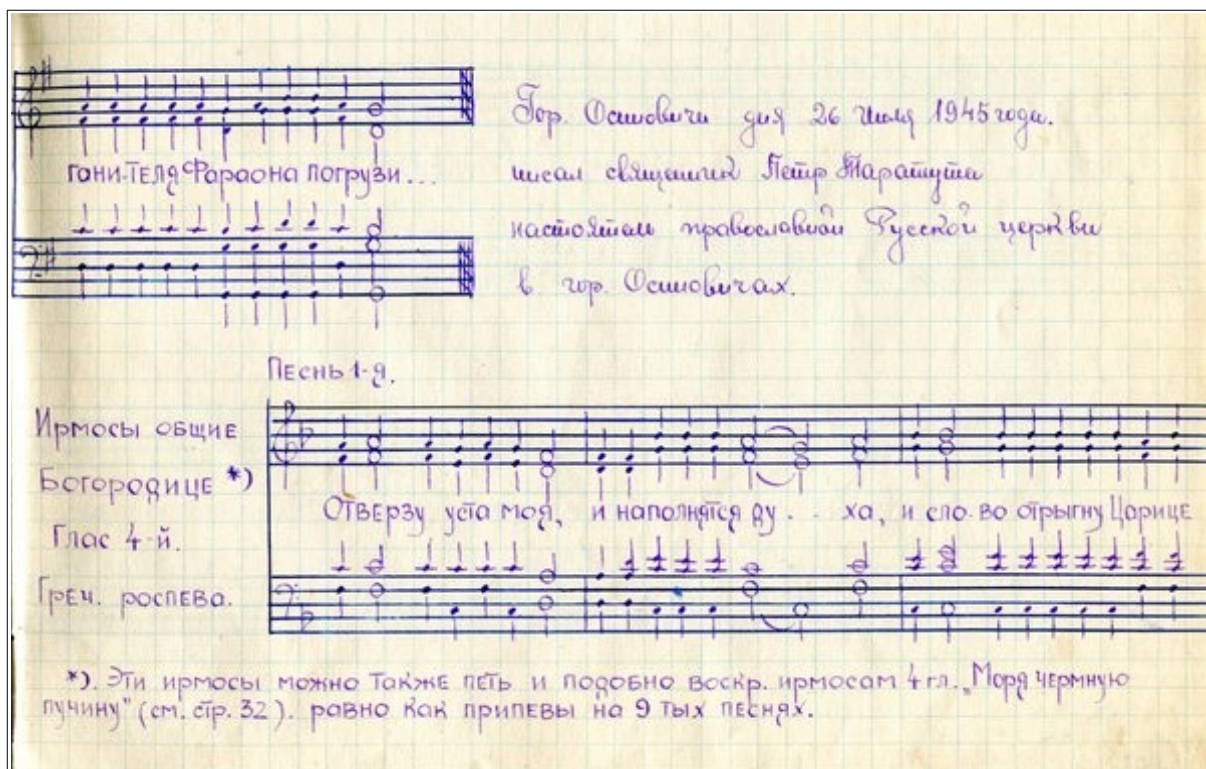 гони-теля Фараона погрузи...
Гор. Осиповичи дня 26 Июля 1945 года.
писал священник Петр Таратута
настоятель православной Русской церкви
в гор. Осиповичах.
Песнь 1-я.
Ирмосы общие
Богородице *)
Глас 4-й.
Греч. роспева.
Отверзу уста моя, и наполнятся ду . . ха, и сло-во отрыгну Царице
*). Эти ирмосы можно также петь и подобно воскр. ирмосам 4 гл. „Моря чермную
пучину" (см. стр. 32). равно как припевы на 9 тых песнях.